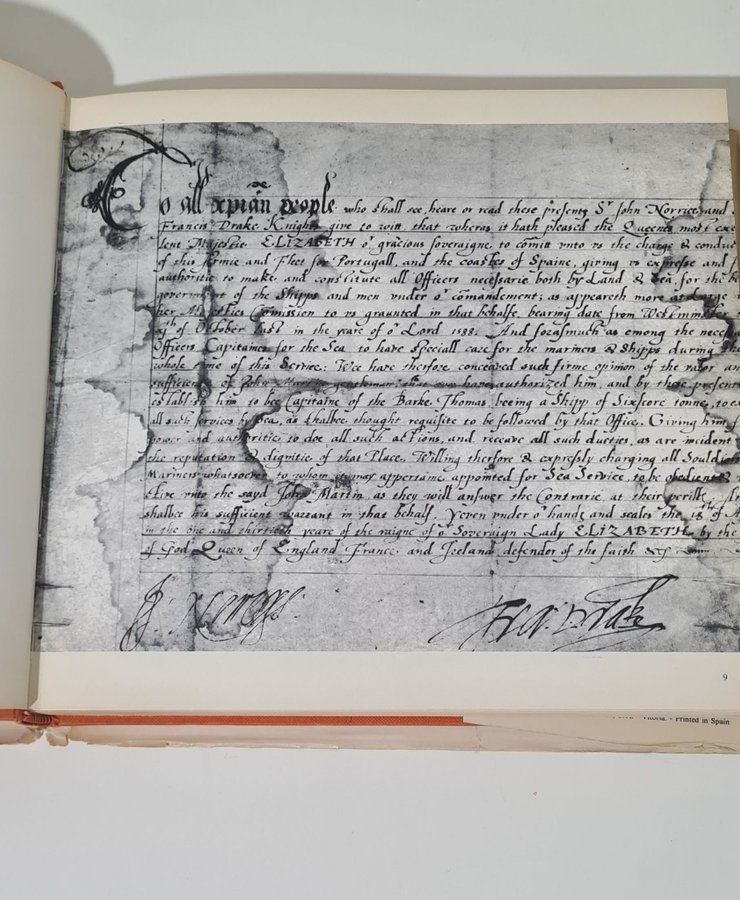 To all xpian people who shall see, heare or read these presents Sr John Norrice and
Francis Drake Knights give to witt that wheras it hath pleased the Queenes most exce
lent Majestie ELIZABETH or gracious soveraigne, to comitt vnto vs the charge & conduc
of this Armie and Fleet for Portugall, and the coastes of Spaine, giving vs expresse and
authoritie to make and constitute all Officers necessarie both by Land & Sea, for the be
government of the Shipps and men vnder or comandement; as appeareth more at large
her Majesties Comission to vs graunted in that behalfe, bearing date from Westminster
of October last in the yeare of or Lord 1588. And forasmuch as among the necess
Officers Capitaines for the Sea to have speciall care for the mariners & Shipps during th
whole time of this Service: Wee have therfore conceived such firme opinion of the valor an
sufficiency of John Martin gentleman, that wee have authorized him, and by these present
establish him to be Capitaine of the Barke Thomas beeing a Shipp of Sixscore tonne, to
all such services by Sea, as shalbee thought requisite to be followed by that Office. Giving him
power and authoritie to doe all such actions, and receave all such duties, as are incident
the reputation & dignitie of that Place. Willing therfore & expressly charging all Sould
Mariners whatsoever to whom it may appertaine appointed for Sea Service, to be obedient &
vnto the sayd John Martin, as they will answer the Contrarie at their perill.
shalbee his sufficient warrant in that behalf. Yeven vnder or hands and seales the of
in the one and thirtieth yeare of the raigne of or Soveraign Lady ELIZABETH by the
of God Queen of England France and Ireland defendor of the faith &c
J. Norreys
Fra. Drake
9
Vitoria. - Printed in Spain